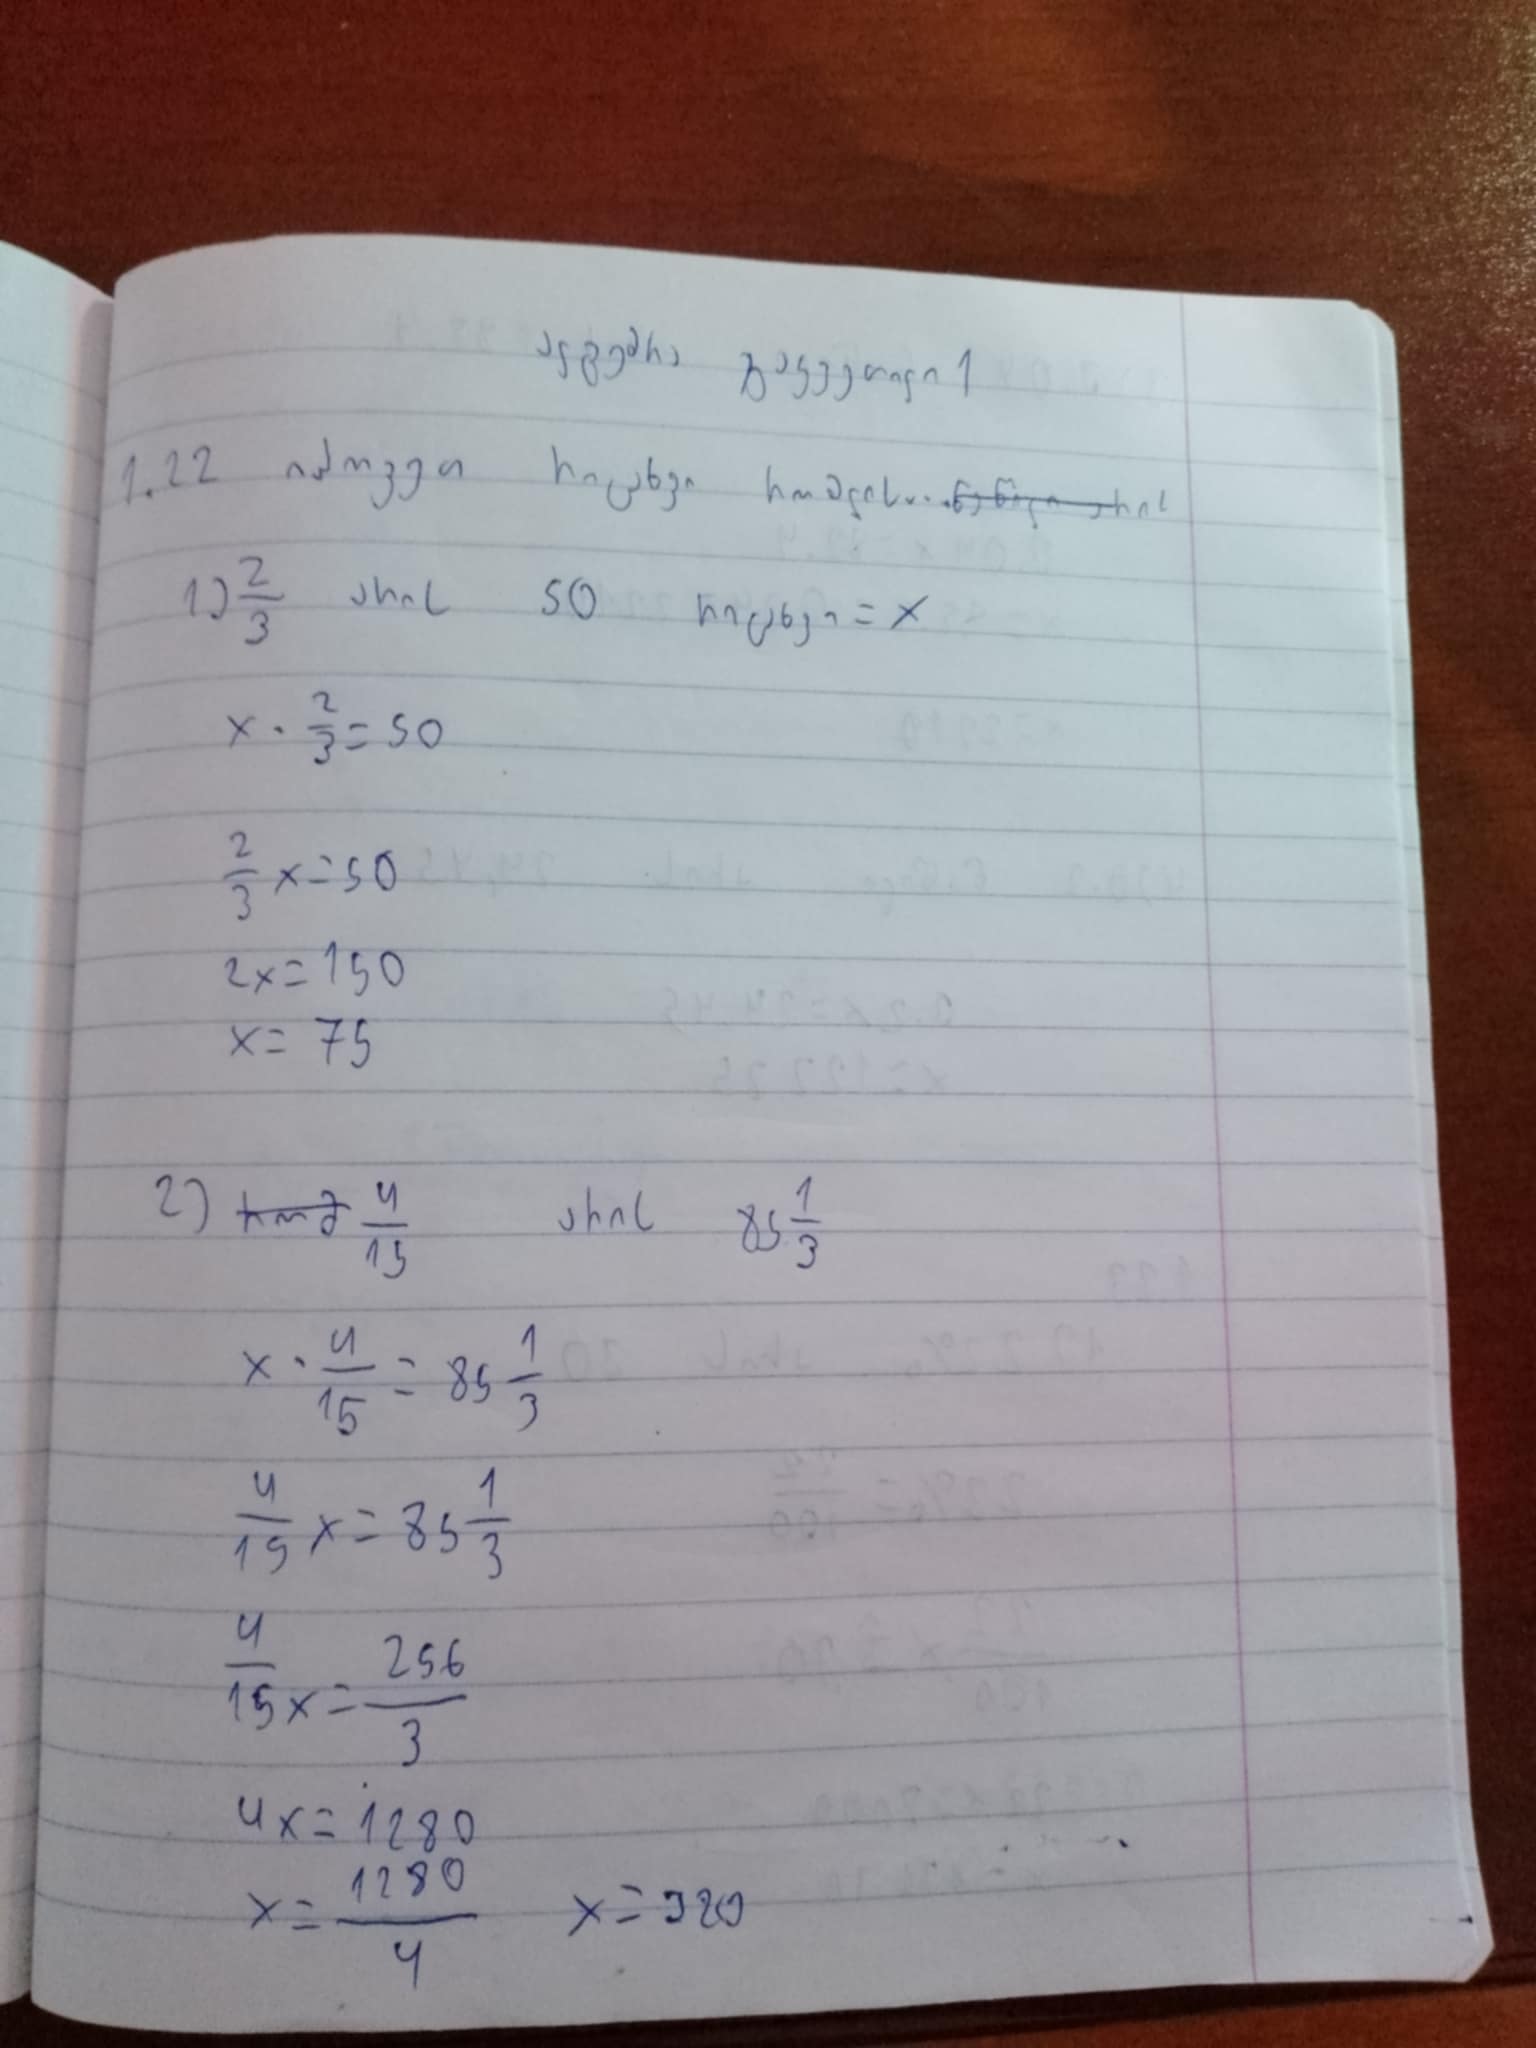 ალგებრა გაკვეთილი 1
1.22 იპოვეთ რიცხვი რომლის
1) 2/3 არის 50 რიცხვი = x
x · 2/3 = 50
2/3 x = 50
2x = 150
x = 75
2) რომ 4/15 არის 85 1/3
x · 4/15 = 85 1/3
4/15 x = 85 1/3
4/15 x = 256/3
4x = 1280
x = 1280/4 x = 320